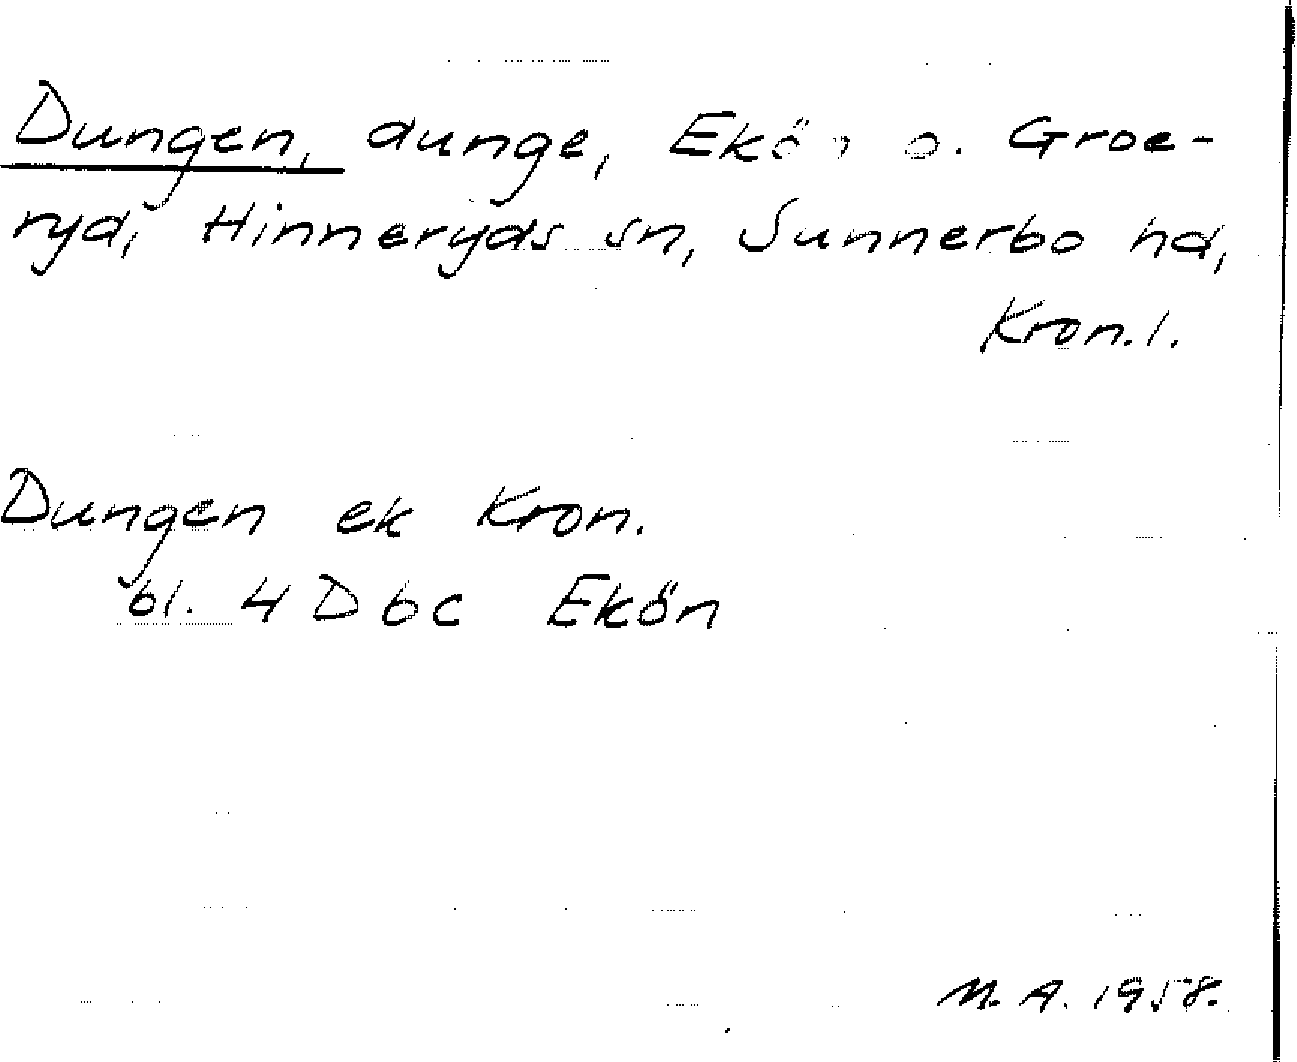 Dungen, dunge, Ekön o. Groe-
ryd, Hinneryds sn, Sunnerbo hd,
Kron.l.
Dungen ek Kron.
bl. 4 D bc Ekön
M.A. 1958.